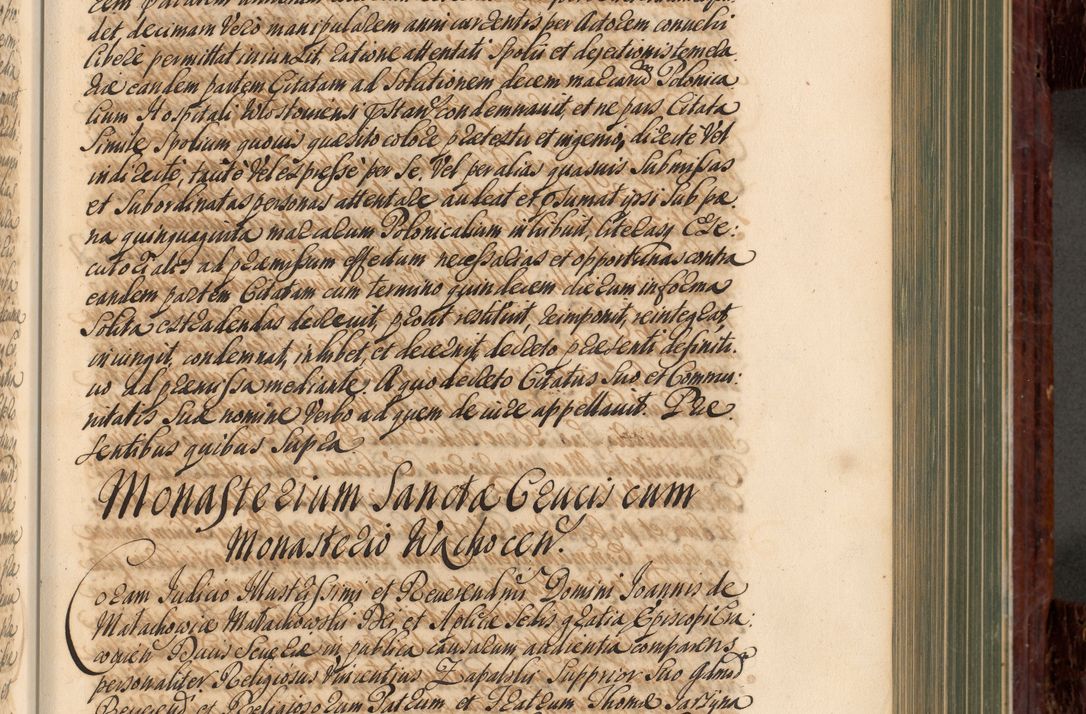 det, decimam Vero manipularem anni currentis per Actorem convehi
libere permittat iniunxit, ratione attentati Spolii et dejectionis temera
riæ eandem partem Citatam ad Solutionem decem marcarū Polonica
lium Hospitali condemnavit, et ne pars Citata
Simile Spolium quovis quæsito colore prætextu et ingenio, directe Vel
indirecte, tacite Vel expresse per se, Vel per alias quasvis Submissas
et Subordinatas personas attentare audeat et præsumat ipsi Sub pæ
na quinquaginta marcarum Polonicalium inhibuit, literasq Exe:
cutoriales ad præmissum effectum necessarias et opportunas contra
eandem partem Citatam cum termino quindecem dierum in forma
Solita extradendas decrevit, prout restituit, reimponit, reintegrat,
iniungit, condemnat, inhibet, et decernit, decreto præsenti definiti:
vo ad præmissa mediante. A quo decreto Citatus Suo et Commu:
nitatis Suæ nomine Verbo ad quem de iure appellavit. Præ
sentibus quibus Supra
Monasterium Sanctæ Crucis cum
Monasterio Wachocen.
Coram Iudicio Illustrissimi et Reverendmi Domini Ioannis de
Małachowice Małachowski Dei et Aplicæ Sedis gratia Episcopi Cra:
covien Ducis Severiæ in publica causarum audientia comparens
personaliter Religiosus Vincentius Supprior Suo
Reverend et Religiosorum Patrum et Fratrum Thomæ